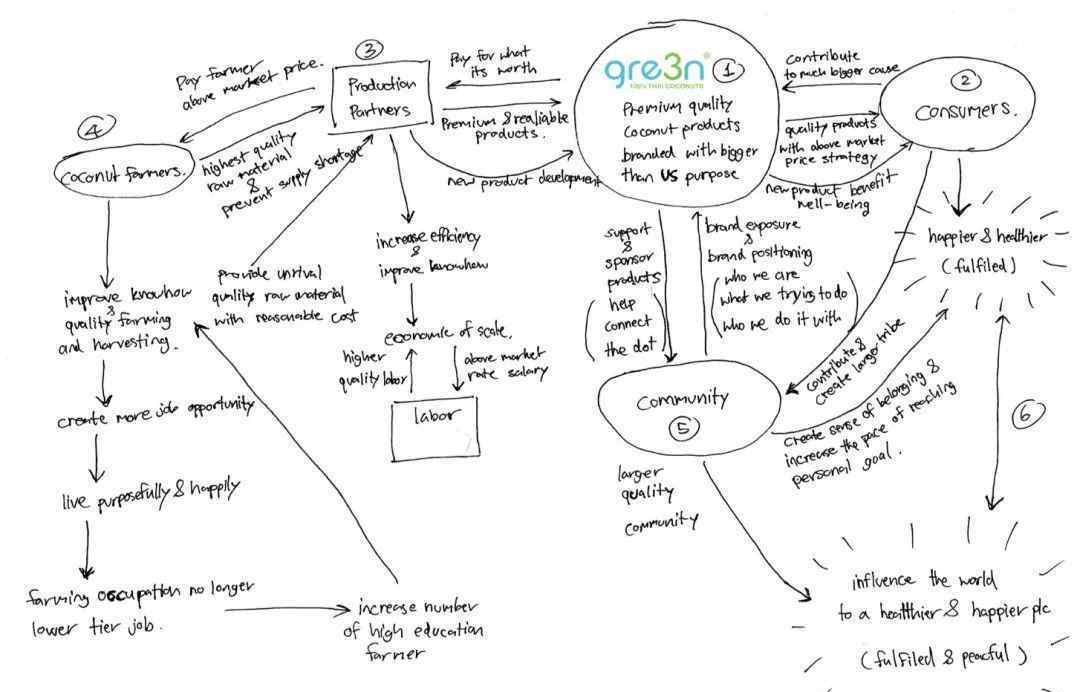 ③
Production
Partners
Pay farmer
above market price.
Pay for what
its worth
Premium & realiable
products.
new product development
gre3n
THAI COCONUTS
①
Premium quality
Coconut products
branded with bigger
than US purpose
contribute
to much bigger cause
②
CONSUMERS.
quality products
with above market
price strategy
new product benefit
well-being
④
coconut farmers.
highest quality
raw material
&
prevent supply shortage
increase efficiency
&
improve knowhow
economic of scale.
higher
quality labor
above market
rate salary
labor
provide unrival
quality raw material
with reasonable cost
improve knowhow
&
quality farming
and harvesting.
create more job opportunity
live purposefully & happily
farming occupation no longer
lower tier job.
increase number
of high education
farmer
support
&
sponsor
products
(help
connect
the dot)
brand exposure
&
brand positioning
(who we are
what we trying to do
who we do it with)
happier & healthier
(fulfiled)
contribute &
create larger tribe
community
⑤
create sense of belonging &
increase the pace of reaching
personal goal.
larger
quality
community
⑥
influence the world
to a healthier & happier plc
(fulfiled & peacful)